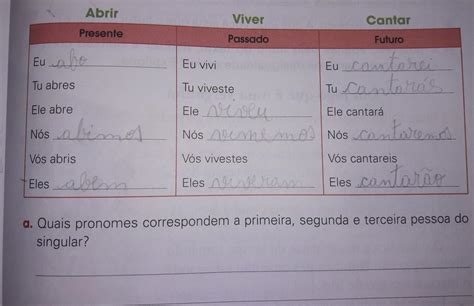 Abrir Viver Cantar
Presente Passado Futuro
Eu abo Eu vivi Eu cantarei
Tu abres Tu viveste Tu cantarás
Ele abre Ele viveu Ele cantará
Nós abimos Nós Nós cantaremos
Vós abris Vós vivestes Vós cantareis
Eles abem Eles viveram Eles cantarão
a. Quais pronomes correspondem a primeira, segunda e terceira pessoa do
singular?